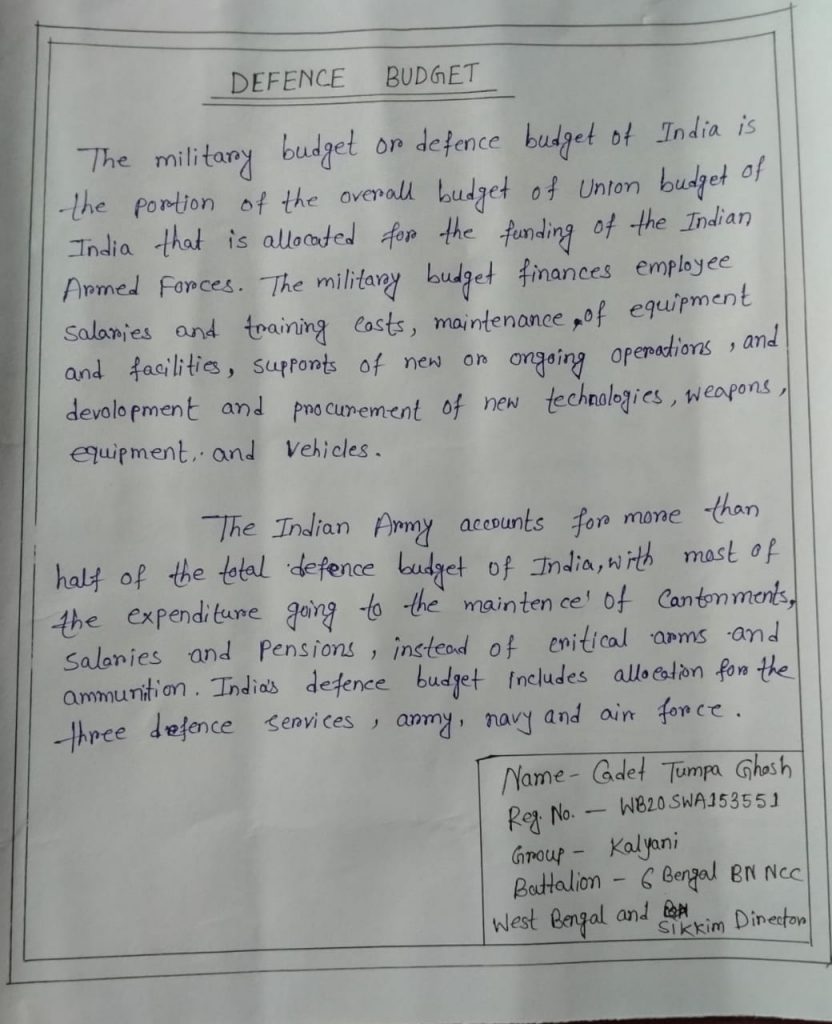 DEFENCE BUDGET
The military budget or defence budget of India is
the portion of the overall budget of Union budget of
India that is allocated for the funding of the Indian
Armed Forces. The military budget finances employee
salaries and training costs, maintenance of equipment
and facilities, supports of new or ongoing operations, and
devolopment and procurement of new technologies, weapons,
equipment, and vehicles.
The Indian Army accounts for more than
half of the total defence budget of India, with most of
the expenditure going to the maintence of Cantonments,
salaries and pensions, instead of critical arms and
ammunition. India's defence budget includes allocation for the
three defence services, army, navy and air force.
Name - Cadet Tumpa Ghosh
Reg. No. - WB20SWA153551
Group - Kalyani
Battalion - 6 Bengal BN NCC
West Bengal and Sikkim Director